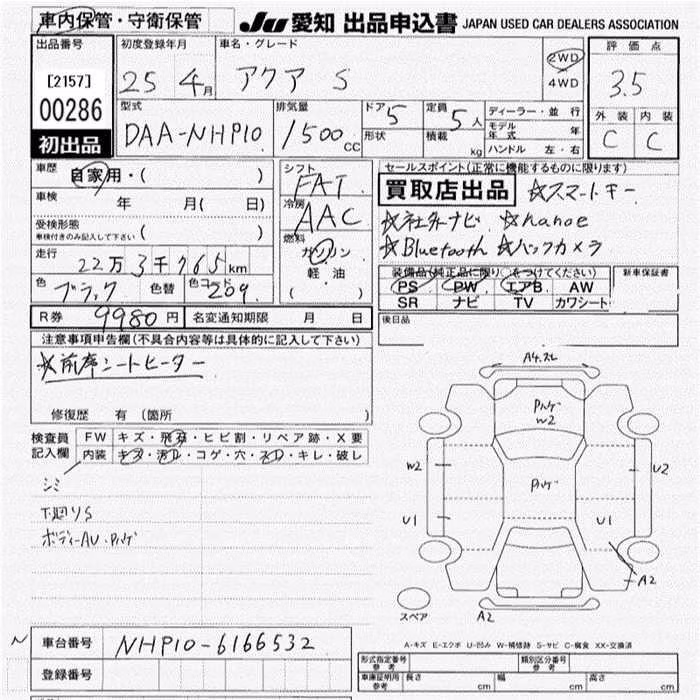 車内保管・守衛保管
JU 愛知 出品申込書 JAPAN USED CAR DEALERS ASSOCIATION
出品番号
[2157]
00286
初出品
初度登録年月
25 4月
車名・グレード
アクア S
2WD
4WD
評価点
3.5
外装 内装
C C
型式
DAA-NHP10
排気量
1500cc
ドア 5
形状
定員 5人
積載 kg
ディーラー・並行
モデル年式 年
ハンドル 左・右
車歴
自家用・( )
車検 年 月( 日)
受検形態
車検付きのみ記入して下さい ( )
走行
22万3千765km
色 ブラック 色替 色コード 209
R券 9980円 名変通知期限 月 日
シフト
FAT
冷房
AAC
燃料
ガソリン
軽油
( )
セールスポイント(正常に機能するものに限ります)
買取店出品 ☆スマートキー
☆社外ナビ ☆nanoe
☆Bluetooth ☆バックカメラ
装備品(純正品に限り○をつけてください)
PS PW エアB AW
SR ナビ TV カワシート
新車保証書
後日品
注意事項申告欄(不具合内容等は具体的に記入して下さい)
☆前席シートヒーター
修復歴 有 (箇所 )
検査員記入欄
FW キズ・飛石・ヒビ割・リペア跡・X要
内装 キズ・汚れ・コゲ・穴・スレ・キレ・破レ
シミ
下廻りS
ボディーAU・Pハゲ
A4.スレ
Pハゲ
W2
W2
U2
Pハゲ
U1
U1
A2
スペア
A2
A-キズ E-エクボ U-凹み W-補修跡 S-サビ C-腐食 XX-交換済
車台番号 NHP10-6166532
登録番号
形式指定番号 参考
類別区分番号 参考
車庫証明用 参考 長さ cm 幅 cm 高さ cm